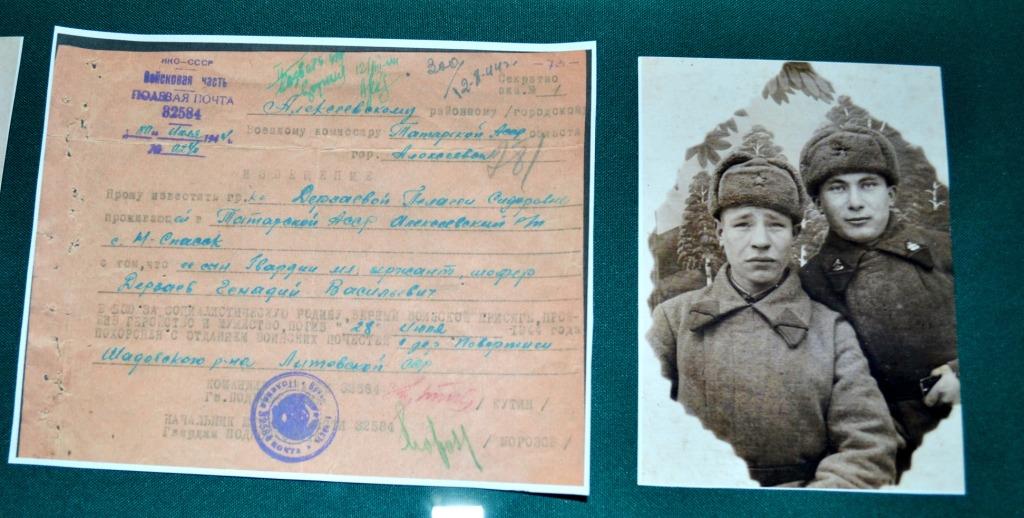 НКО-СССР
Войсковая часть
ПОЛЕВАЯ ПОЧТА
32584
Июля 194
№
300/12-8-44г.
Секретно
экз. № 1
Алексеевскому районному /городскому
Военкому комиссару Татарской Асср области
гор. Алексеевск
ИЗВЕЩЕНИЕ
Прошу известить гр.ку Держаевой Пелагеи Сидоровне
проживающей в Татарской Асср Алексеевский р/н
с. М-Спасск
с том, что ее сын Гвардии мл. сржант, шофер
Держаев Генадий Васильевич
В БОЮ ЗА СОЦИАЛИСТИЧЕСКУЮ РОДИНУ, ВЕРНЫЙ ВОИНСКОЙ ПРИСЯГЕ, ПРОЯ-
ВИВ ГЕРОЙСТВО И МУЖЕСТВО, ПОГИБ "28" Июля 1944 года
ПОХОРОНЕН С ОТДАНИЕМ ВОИНСКИХ ПОЧЕСТЕЙ в дер.
Шадовского р-на Литовской ССР
32584
/ КУТИН /
НАЧАЛЬНИК 32584
Гвардии / МОРОЗОВ /